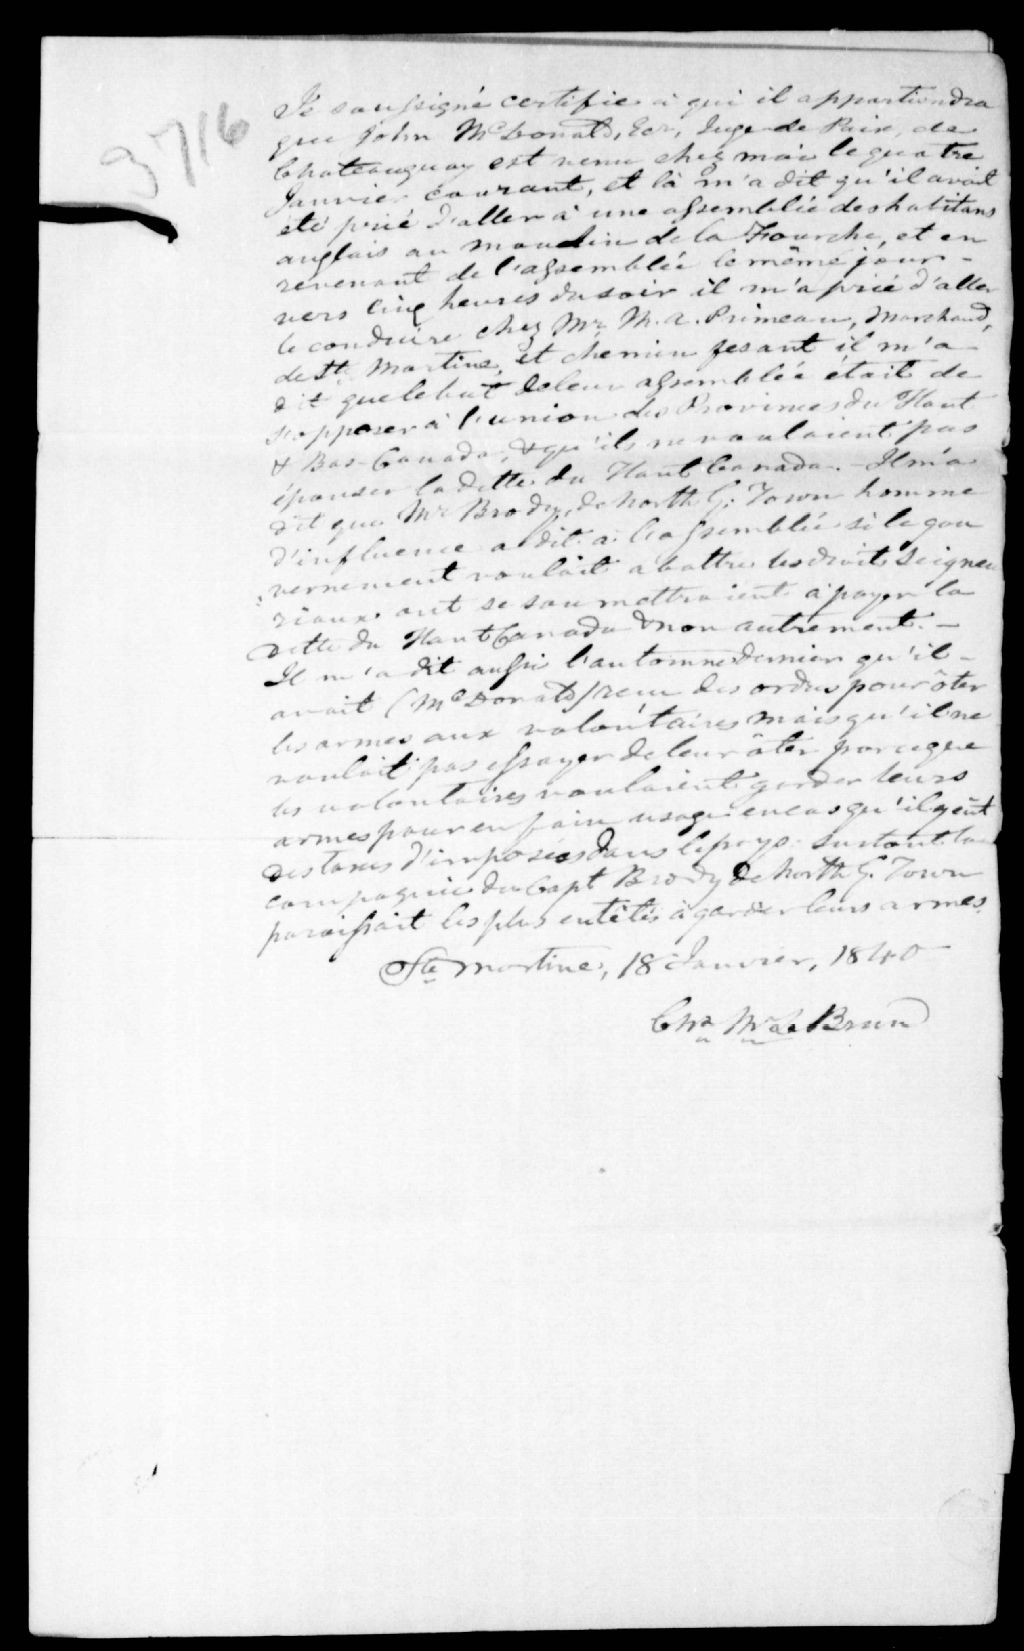 3716
Je soussigné certifie à qui il appartiendra
que John McDonald, Ecr, Juge de Paix, de
Chateauguay est venu chez moi le quatre
Janvier courant, et là m'a dit qu'il avait
été prié d'aller à une assemblée des habitans
anglais au moulin de la Fourche, et en
revenant de l'assemblée le même jour -
vers cinq heures du soir il m'a prié d'aller
le conduire chez Mr M. A. Primeau, Marchand,
de Ste Martine, et chemin fesant il m'a
dit que le but de leur assemblée était de
s'opposer à l'union des Provinces du Haut
& Bas-Canada, & qu'ils ne voulaient pas
épouser la dette du Haut Canada. - Il m'a
dit que Mr Brody, de North G. Town homme
d'influence a dit à l'assemblée si le gou
vernement voulait abattre les droits Seigneu
riaux ont se soumettraient à payer la
dette du Haut Canada & non autrement. -
Il m'a dit aussi l'automne dernier qu'il -
avait (McDonald) reçu des ordres pour ôter
les armes aux volontaires mais qu'il ne
voulait pas essayer de leur ôter parceque
les volontaires voulaient garder leurs
armes pour en faire usage en cas qu'il y eût
des taxes d'imposées dans le pays. surtout la
compagnie du Capt Brody de North G. Town
paraissait les plus entêtés à garder leurs armes.
Ste Martine, 18 Janvier, 1840
Brun